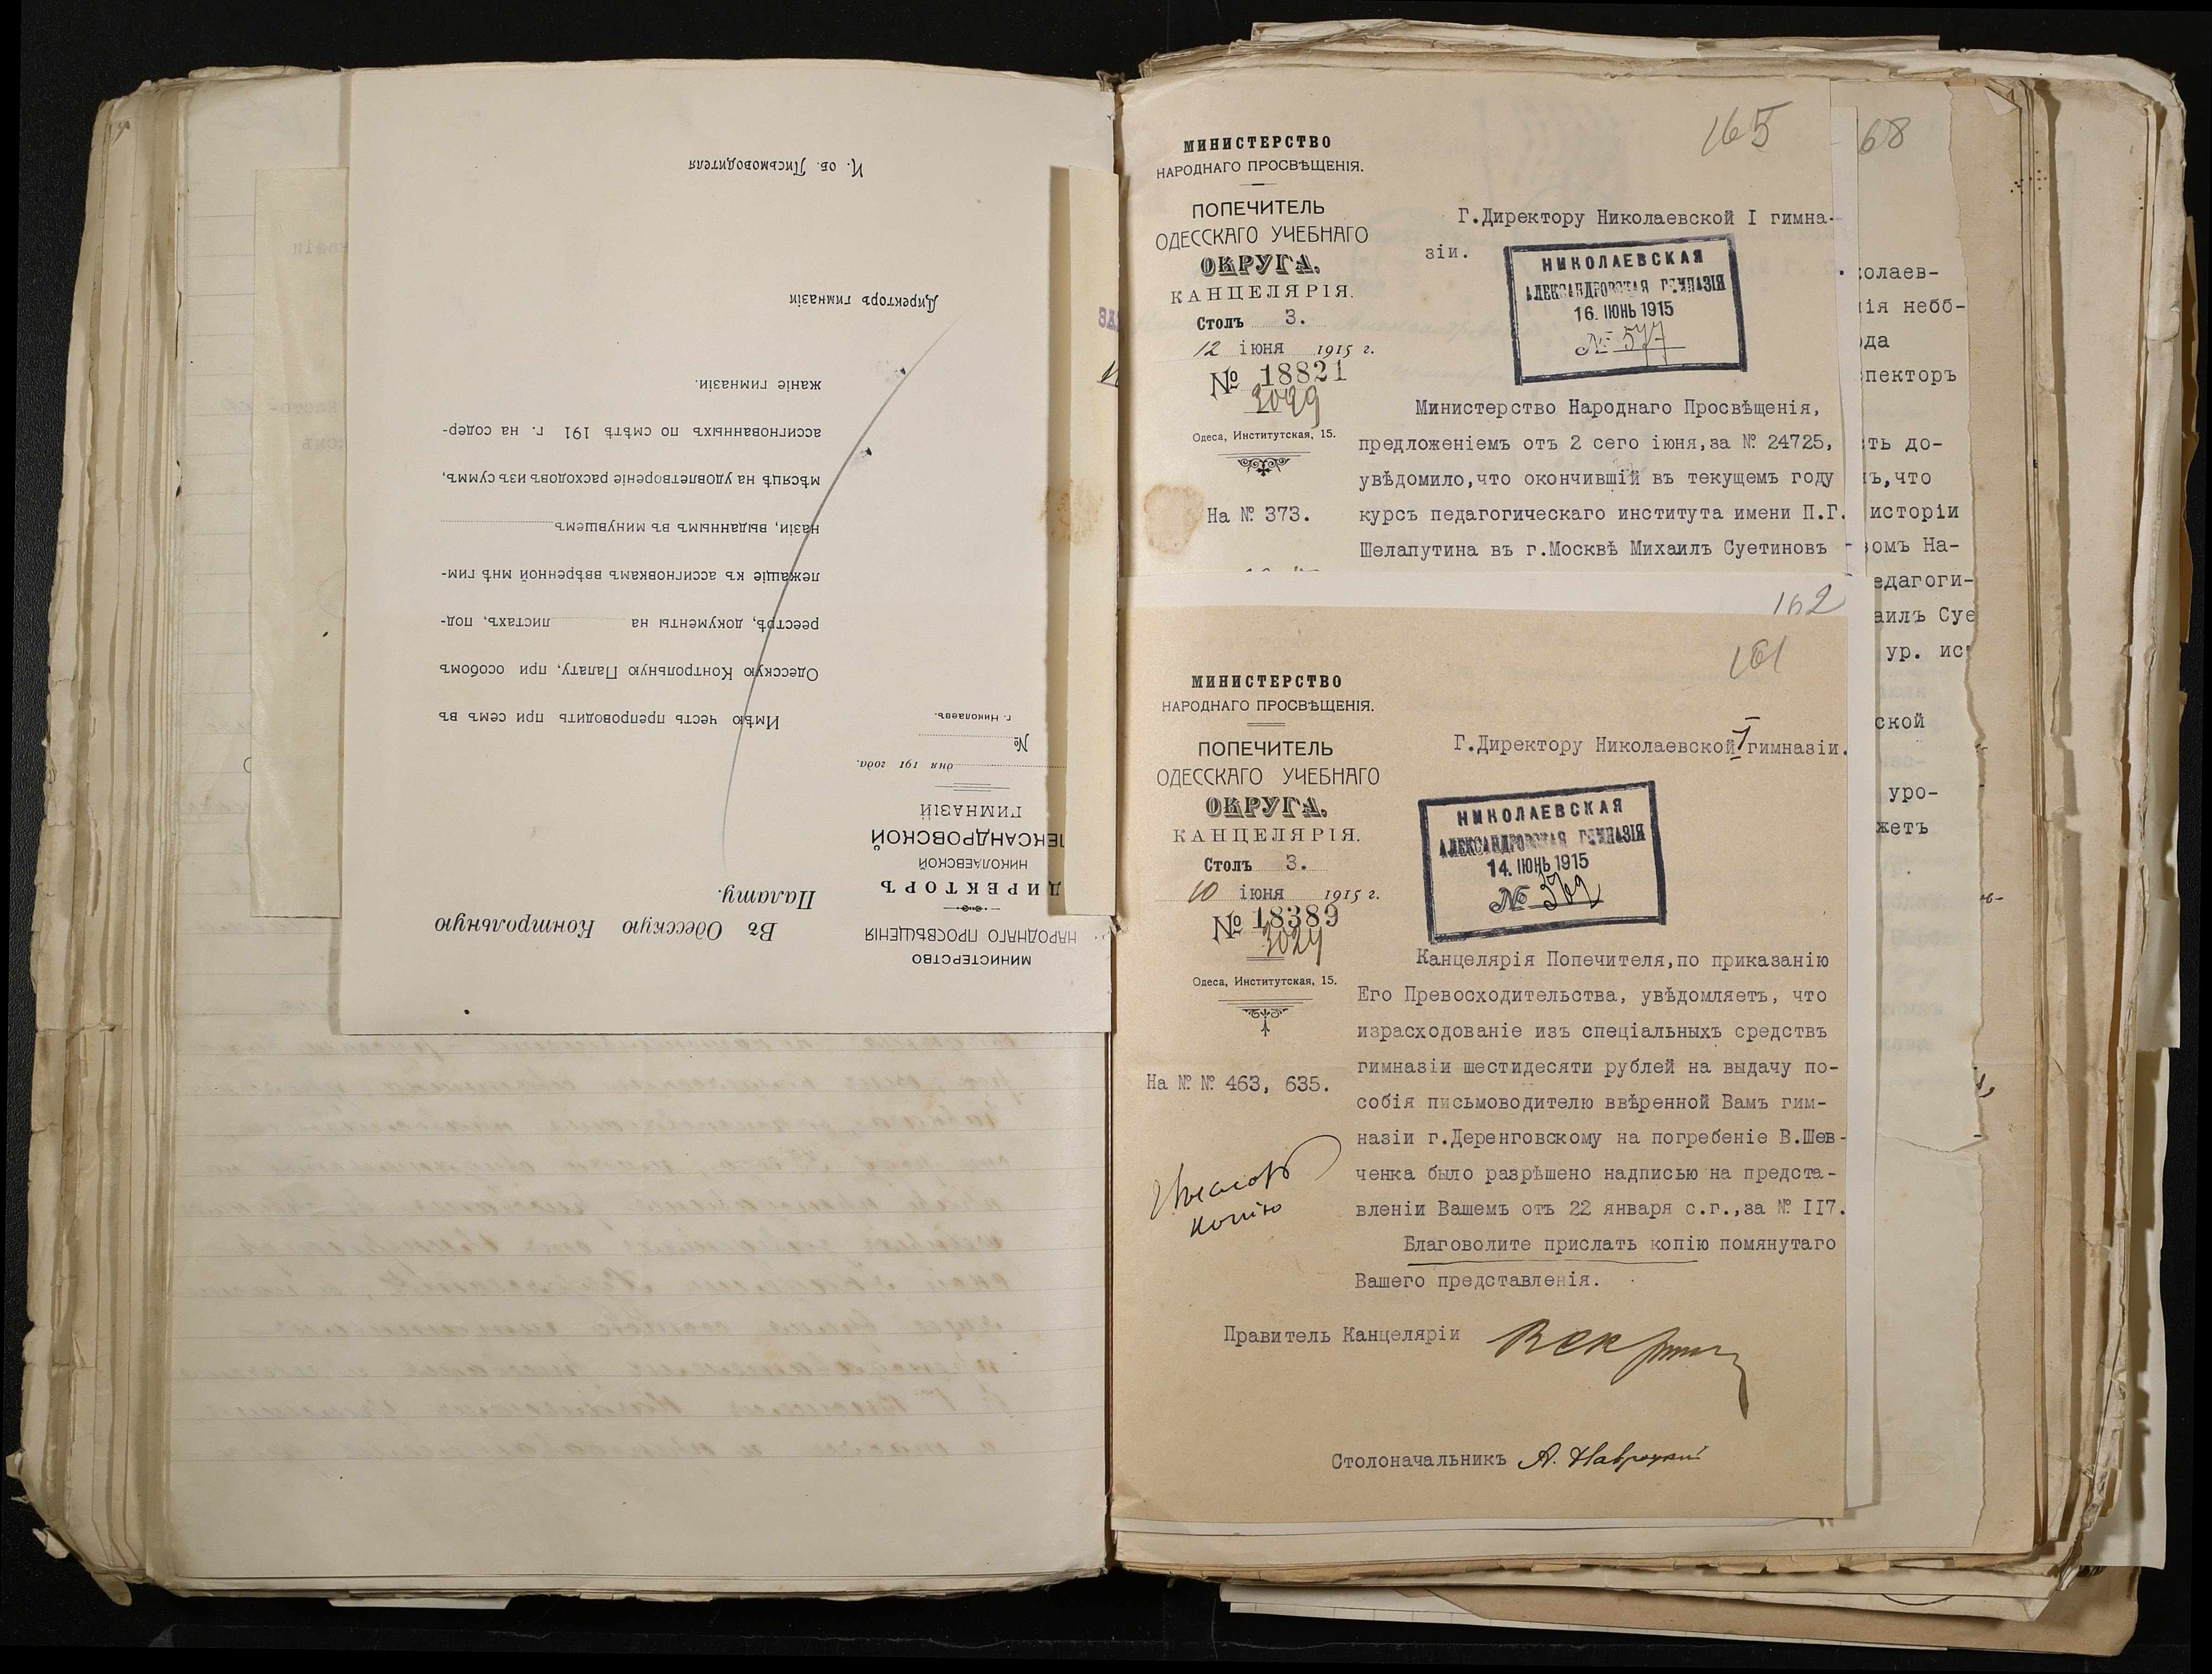 И. об. Письмоводителя
Директоръ гимназіи
МИНИСТЕРСТВО
НАРОДНАГО ПРОСВѢЩЕНІЯ
ДИРЕКТОРЪ
НИКОЛАЕВСКОЙ
ЛЕКСАНДРОВСКОЙ
ГИМНАЗІЙ
дня 191 года.
№
г. Николаевъ.
Въ Одесскую Контрольную
Палату.
Имѣю честь препроводить при семъ въ
Одесскую Контрольную Палату, при особомъ
реестрѣ, документы на листахъ, под-
лежащіе къ ассигновкамъ ввѣренной мнѣ гим-
назіи, выданнымъ въ минувшемъ
мѣсяцѣ на удовлетвореніе расходовъ изъ суммъ,
ассигнованныхъ по смѣтѣ 191 г. на содер-
жаніе гимназіи.
165
МИНИСТЕРСТВО
НАРОДНАГО ПРОСВѢЩЕНІЯ.
ПОПЕЧИТЕЛЬ
ОДЕССКАГО УЧЕБНАГО
ОКРУГА.
КАНЦЕЛЯРІЯ.
Столъ 3.
12 іюня 1915 г.
№ 18821
Одеса, Институтская, 15.
На № 373.
Г.Директору Николаевской I гимна-
зіи.
НИКОЛАЕВСКАЯ
АЛЕКСАНДРОВСКАЯ ГИМНАЗІЯ
16. ІЮНЬ 1915
№ 577
Министерство Народнаго Просвѣщенія,
предложеніемъ отъ 2 сего іюня,за № 24725,
увѣдомило,что окончившій въ текущемъ году
курсъ педагогическаго института имени П.Г.
Шелапутина въ г.Москвѣ Михаилъ Суетиновъ -
68
колаев-
нія небб-
ода
спекторъ
ть до-
ъ,что
исторіи
вомъ На-
едагоги-
аилъ Суе
ур. ис
ской
уро-
жетъ
162
161
МИНИСТЕРСТВО
НАРОДНАГО ПРОСВѢЩЕНІЯ.
ПОПЕЧИТЕЛЬ
ОДЕССКАГО УЧЕБНАГО
ОКРУГА.
КАНЦЕЛЯРІЯ.
Столъ 3.
10 іюня 1915 г.
№ 18389
Одеса, Институтская, 15.
На № № 463, 635.
копію
Г.Директору Николаевской I гимназіи.
НИКОЛАЕВСКАЯ
АЛЕКСАНДРОВСКАЯ ГИМНАЗІЯ
14. ІЮНЬ 1915
№
Канцелярія Попечителя,по приказанію
Его Превосходительства, увѣдомляетъ, что
израсходованіе изъ спеціальныхъ средствъ
гимназіи шестидесяти рублей на выдачу по-
собія письмоводителю ввѣренной Вамъ гим-
назіи г.Деренговскому на погребеніе В.Шев-
ченка было разрѣшено надписью на предста-
вленіи Вашемъ отъ 22 января с.г.,за № II7.
Благоволите прислать копію помянутаго
Вашего представленія.
Правитель Канцеляріи
Столоначальникъ А. Навроцкій